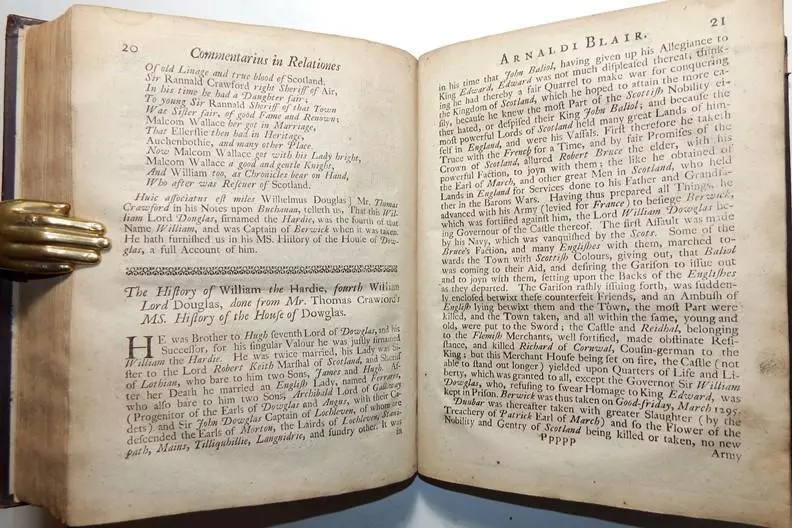 20
Commentarius in Relationes
Of old Linage and true blood of Scotland.
Sir Rannald Crawford right Sheriff of Air,
In his time he had a Daughter fair;
To young Sir Rannald Sheriff of that Town
Was Sister fair, of good Fame and Renown;
Malcom Wallace her got in Marriage,
That Ellerslie then had in Heritage,
Auchenbothie, and many other Place.
Now Malcom Wallace got with his Lady bright,
Malcom Wallace a good and gentle Knight,
And William too, as Chronicles bear on Hand,
Who after was Rescuer of Scotland.
Huic associatus est miles Wilhelmus Douglas] Mr. Thomas
Crawford in his Notes upon Buchanan, telleth us, That this Wil-
liam Lord Douglas, sirnamed the Hardie, was the fourth of that
Name William, and was Captain of Berwick when it was taken.
He hath furnished us in his MS. History of the House of Dow-
glas, a full Account of him.
The History of William the Hardie, fourth William
Lord Douglas, done from Mr. Thomas Crawford's
MS. History of the House of Dowglas.
HE was Brother to Hugh seventh Lord of Dowglas, and his
Successor, for his singular Valour he was justly sirnamed
William the Hardie. He was twice married, his Lady was Si-
ster to the Lord Robert Keith Marshal of Scotland, and Sheriff
of Lothian, who bare to him two Sons, James and Hugh. Af-
ter her Death he married an English Lady, named Ferrars,
who also bare to him two Sons, Archbald Lord of Galloway
(Progenitor of the Earls of Dowglas and Angus, with their Ca-
dets) and Sir John Dowglas Captain of Lochleven, of whom are
descended the Earls of Morton, the Lairds of Lochleven, Stani-
path, Mains, Tilliquhillie, Langnidrie, and sundry other. It was
in
21
ARNALDI BLAIR.
in his time that John Baliol, having given up his Allegiance to
King Edward, Edward was not much displeased thereat, think-
ing he had thereby a fair Quarrel to make war for conquering
the Kingdom of Scotland, which he hoped to attain the more ea-
sily, because he knew the most Part of the Scottish Nobility ei-
ther hated, or despised their King John Baliol; and because the
most powerful Lords of Scotland held many great Lands of him-
self in England, and were his Vassals. First therefore he taketh
Truce with the French for a Time, and by fair Promises of the
Crown of Scotland, allured Robert Bruce the elder, with his
powerful Faction, to joyn with him; the like he obtained of
the Earl of March, and other great Men in Scotland, who held
Lands in England for Services done to his Father and Grandfa-
ther in the Barons Wars. Having thus prepared all Things, he
advanced with his Army (levied for France) to besiege Berwick,
which was fortified against him, the Lord William Dowglas be-
ing Governour of the Castle thereof. The first Assault was made
by his Navy, which was vanquished by the Scots. Some of the
Bruce's Faction, and many Englishes with them, marched to-
wards the Town with Scottish Colours, giving out, that Baliol
was coming to their Aid, and desiring the Garison to issue out
and to joyn with them, setting upon the Backs of the Englishes
as they departed. The Garison rashly issuing forth, was sudden-
ly enclosed betwixt these counterfeit Friends, and an Ambush of
English lying betwixt them and the Town, the most Part were
killed, and the Town taken, and all within the same, young and
old, were put to the Sword; the Castle and Reidhal, belonging
to the Flemish Merchants, well fortified, made obstinate Resi-
stance, and killed Richard of Cornwal, Cousin-german to the
King; but this Merchant House being set on fire, the Castle (not
able to stand out longer) yielded upon Quarters of Life and Li-
berty, which was granted to all, except the Governor Sir William
Dowglas, who, refusing to swear Homage to King Edward, was
kept in Prison. Berwick was thus taken on Good-friday, March 1295.
Dunbar was thereafter taken with greater Slaughter (by the
Treachery of Patrick Earl of March) and so the Flower of the
Nobility and Gentry of Scotland being killed or taken, no new
Ppppp
Army